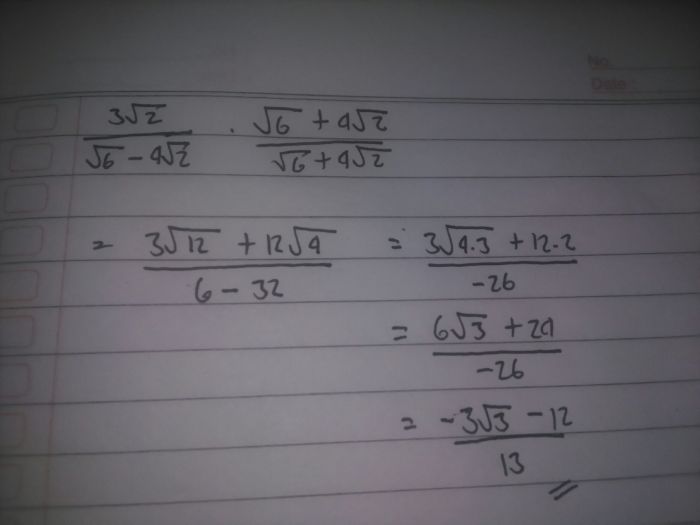 No
Date :
3√2 / √6 - 4√2 . √6 + 4√2 / √6 + 4√2
= 3√12 + 12√4 / 6 - 32 = 3√4.3 + 12.2 / -26
= 6√3 + 24 / -26
= -3√3 - 12 / 13